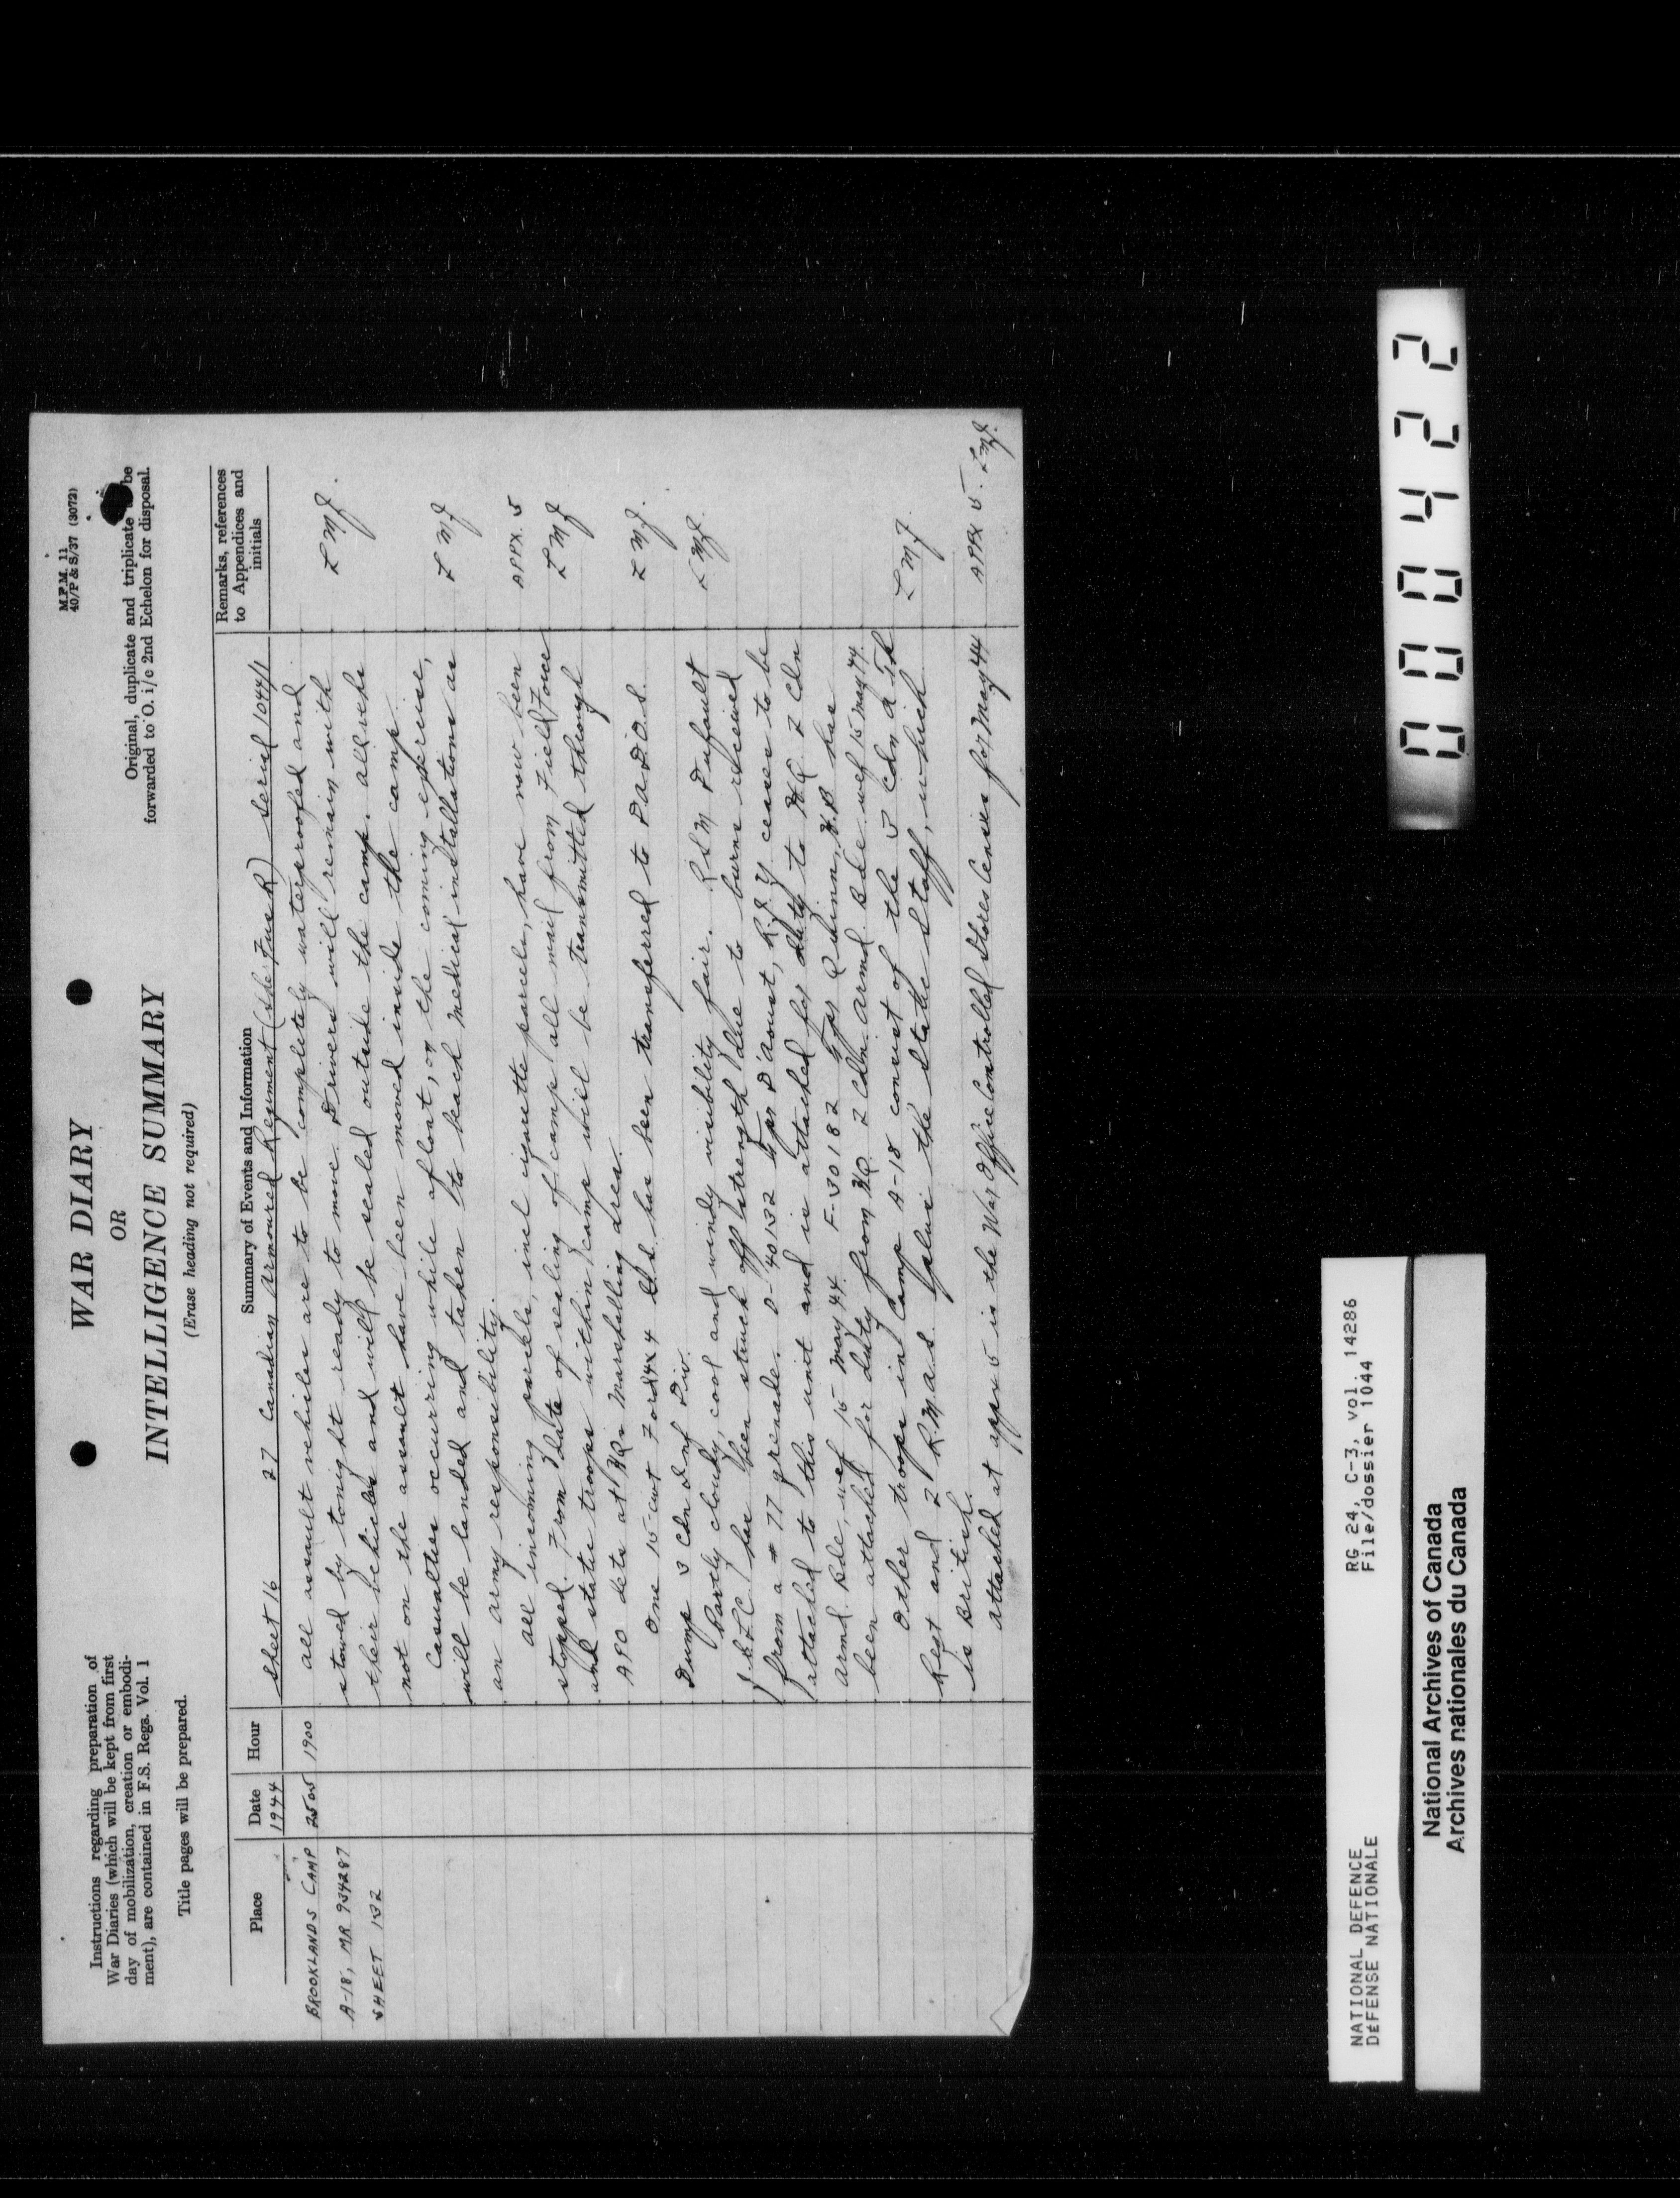 M.F.M. 11
40/P & S/37 (3072)
Instructions regarding preparation of
War Diaries (which will be kept from first
day of mobilization, creation or embodi-
ment), are contained in F.S. Regs. Vol. 1
Title pages will be prepared.
WAR DIARY
OR
INTELLIGENCE SUMMARY
(Erase heading not required)
Original, duplicate and triplicate be
forwarded to O. i/c 2nd Echelon for disposal.
Place Date Hour Summary of Events and Information Remarks, references to Appendices and initials
1944 Sheet 16 27 Canadian Armoured Regiment (She Fus R) Serial 1044/1
BROOKLANDS CAMP 25 1900 All assault vehicles are to be completely waterproofed and L M J.
A-18, MR 934287 stowed by tonight ready to move. Drivers will remain with
SHEET 132 their vehicles and will be sealed outside the camp. All vehs
not on the assault have been moved inside the camp.
Casualties occurring while afloat, on the coming exercise, L M J
will be landed and taken to beach medical installations as
an army responsibility.
All incoming parcels, incl cigarette parcels, have now been APPX. 5
stopped. From date of sealing of camp all mail from Field Force L M J
and static troops within camp will be transmitted through
APO dets at HQs Marshalling area.
One 15-cwt Ford 4x4 G.S. has been transferred to D.A.D.O.S. L M J.
Dump 3 Cdn Inf Div.
Partly cloudy, cool and windy visibility fair. RSM Dufault L M J.
J.B.L.C. has been struck off strength due to burns received
from a # 77 grenade. D-40132 Tpr D'Aoust, R.J.Y ceases to be
attached to this unit and is attached for duty to HQ 2 Cdn
Armd. Bde, wef 15 May 44. F-30182 Tpr Quinn, H.B has
been attached for duty from HQ 2 Cdn Armd. Bde wef 15 May 44.
Other troops in Camp A-18 consist of the 3 Cdn A Tk L M J
Regt and 2 R.M.A.S. plus the static staff, which
is British.
Attached at appx 5 is the War Office Controlled Stores Census for May 44 APPX 5. LMJ.
NATIONAL DEFENCE RG 24, C-3, vol. 14286
DÉFENSE NATIONALE File/dossier 1044
National Archives of Canada
Archives nationales du Canada
000422